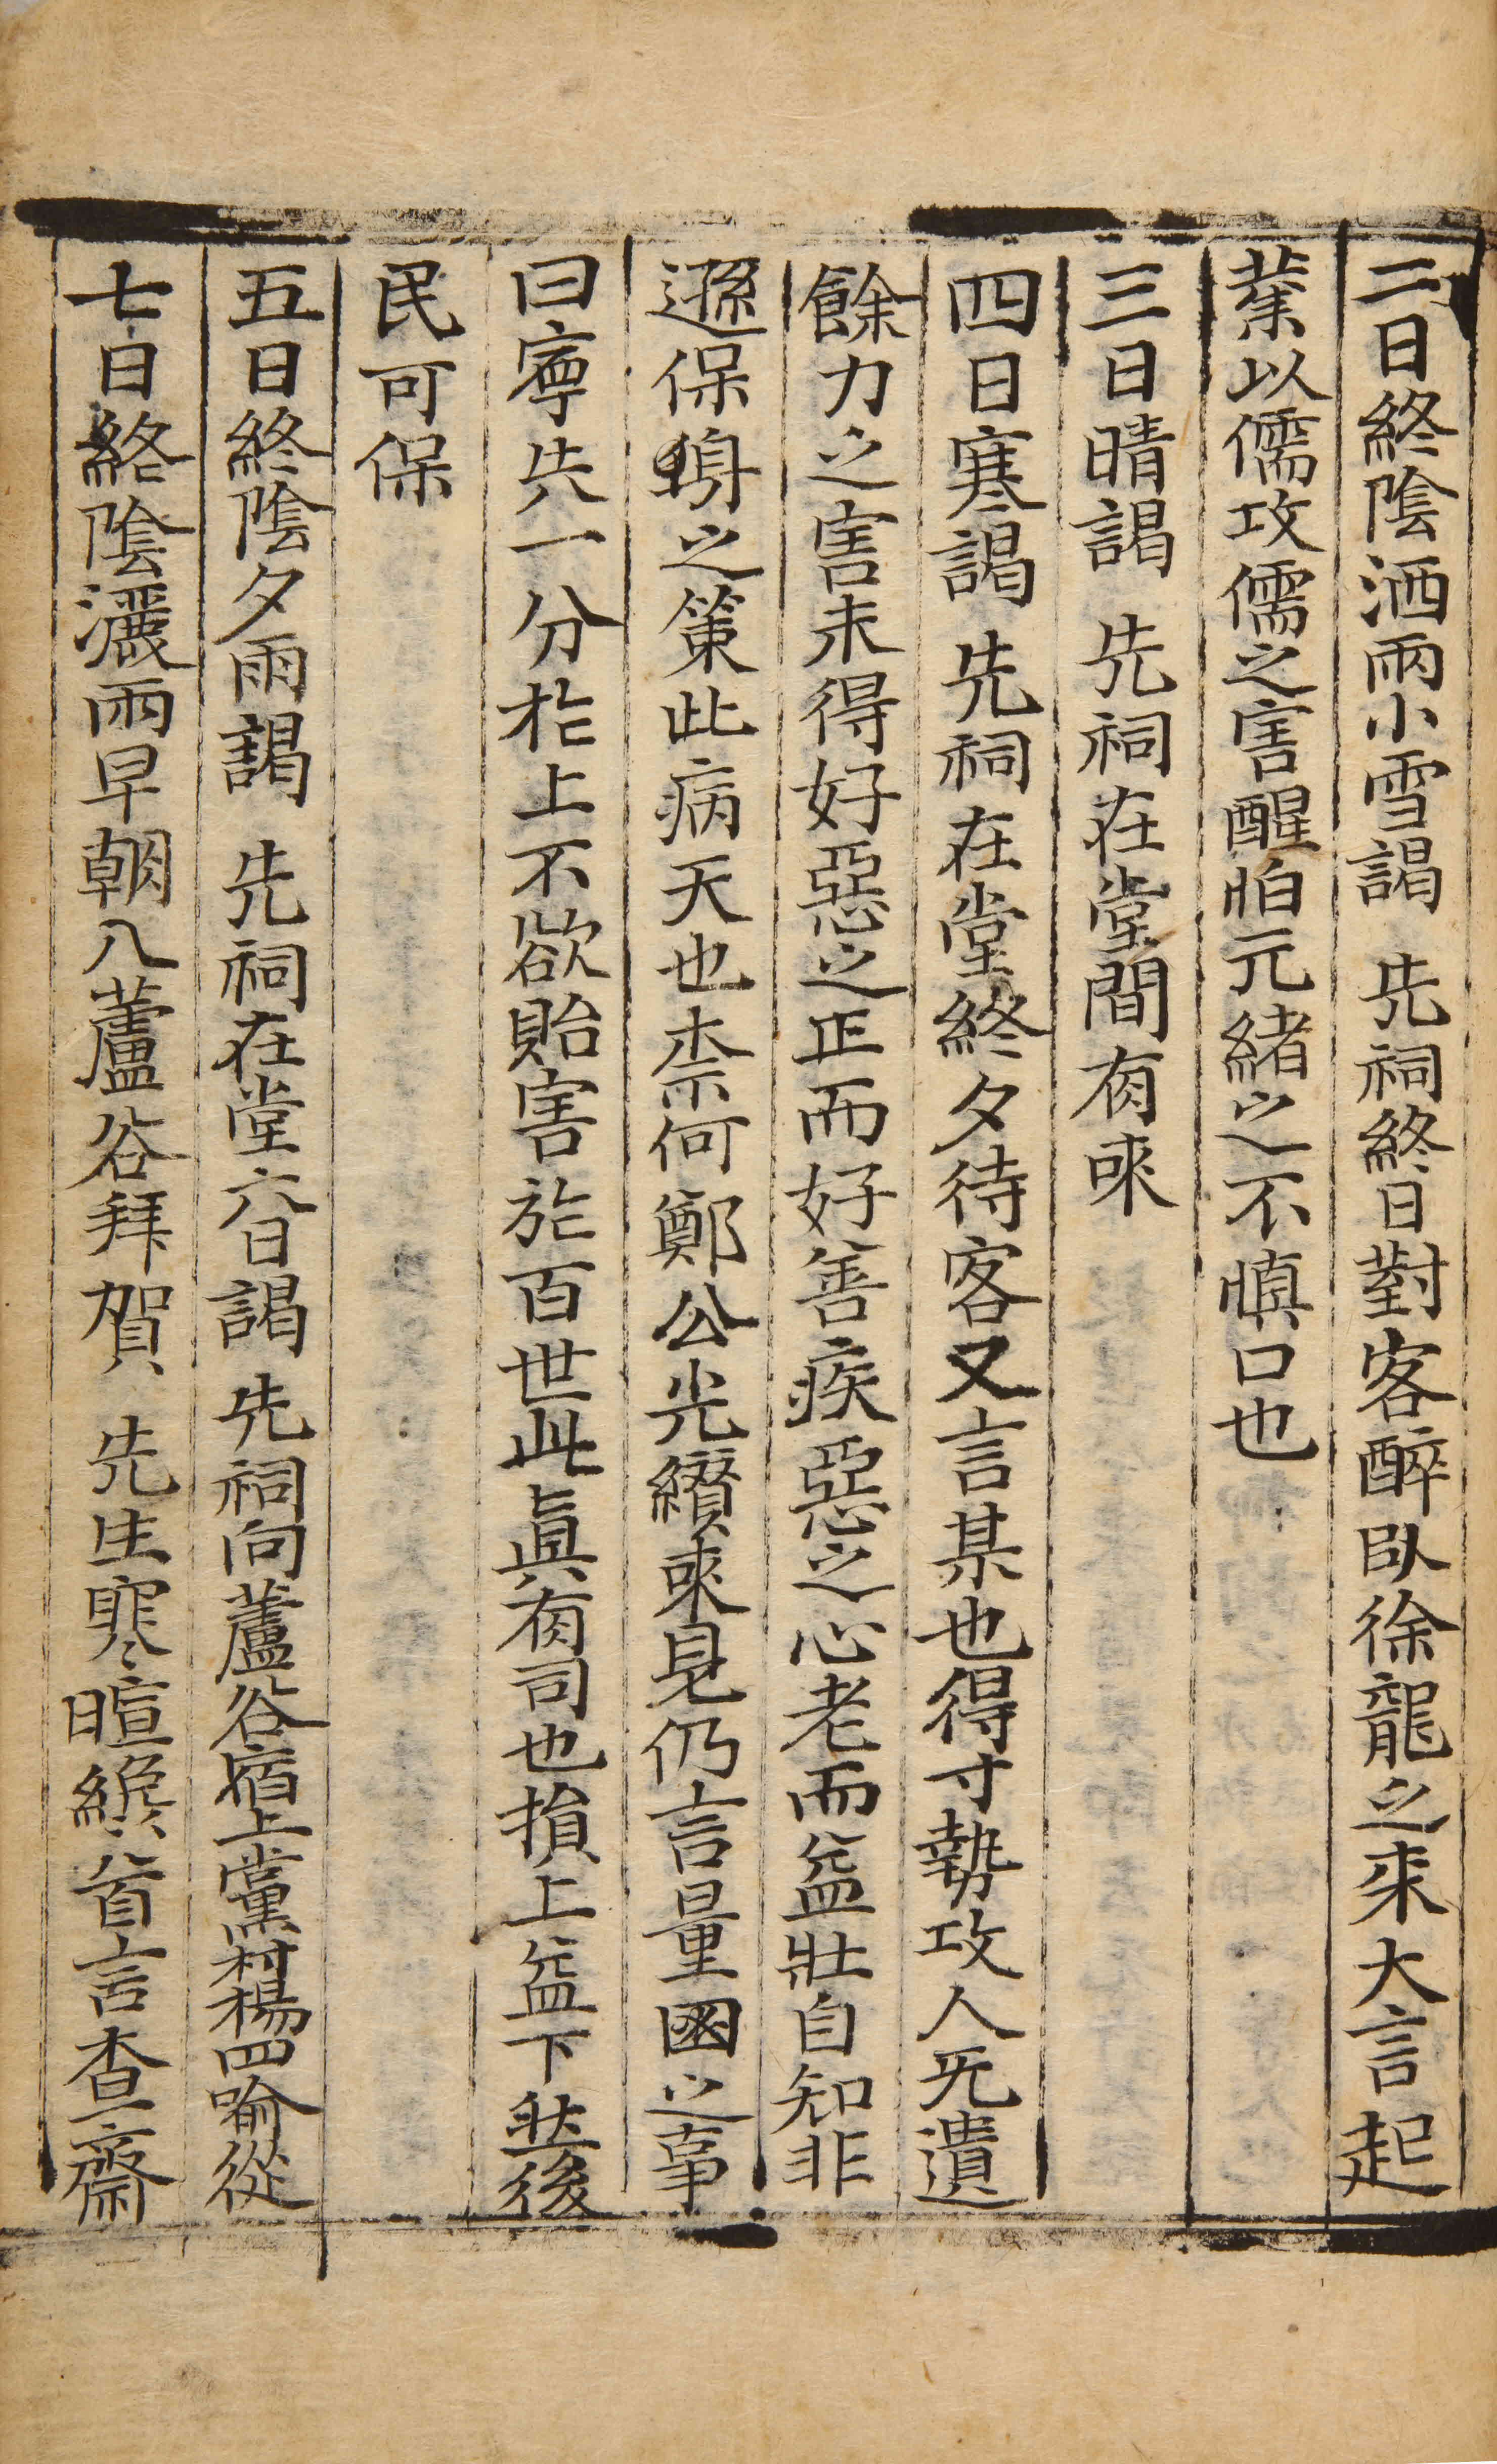 二日終陰洒雨小雪謁 先祠終日對客醉臥徐龍之來大言起
業以儒攻儒之害醒怕元緒之不愼口也
三日晴謁 先祠在堂間有來
四日寒謁 先祠在堂終夕待客又言某也得寸勢攻人旡遺
餘力之害未得好惡之正而好善疾惡之心老而益壯自知非
遜保身之策此病天也柰何鄭公光纘來見仍言量國之事
曰寧失一分於上不欲貽害於百世此眞有司也損上益下然後
民可保
五日終陰夕雨謁 先祠在堂六日謁 先祠向蘆谷宿上黨村楊四喻從
七日終陰灑雨早朝入蘆谷拜賀 先生寒暄纔首言查齋